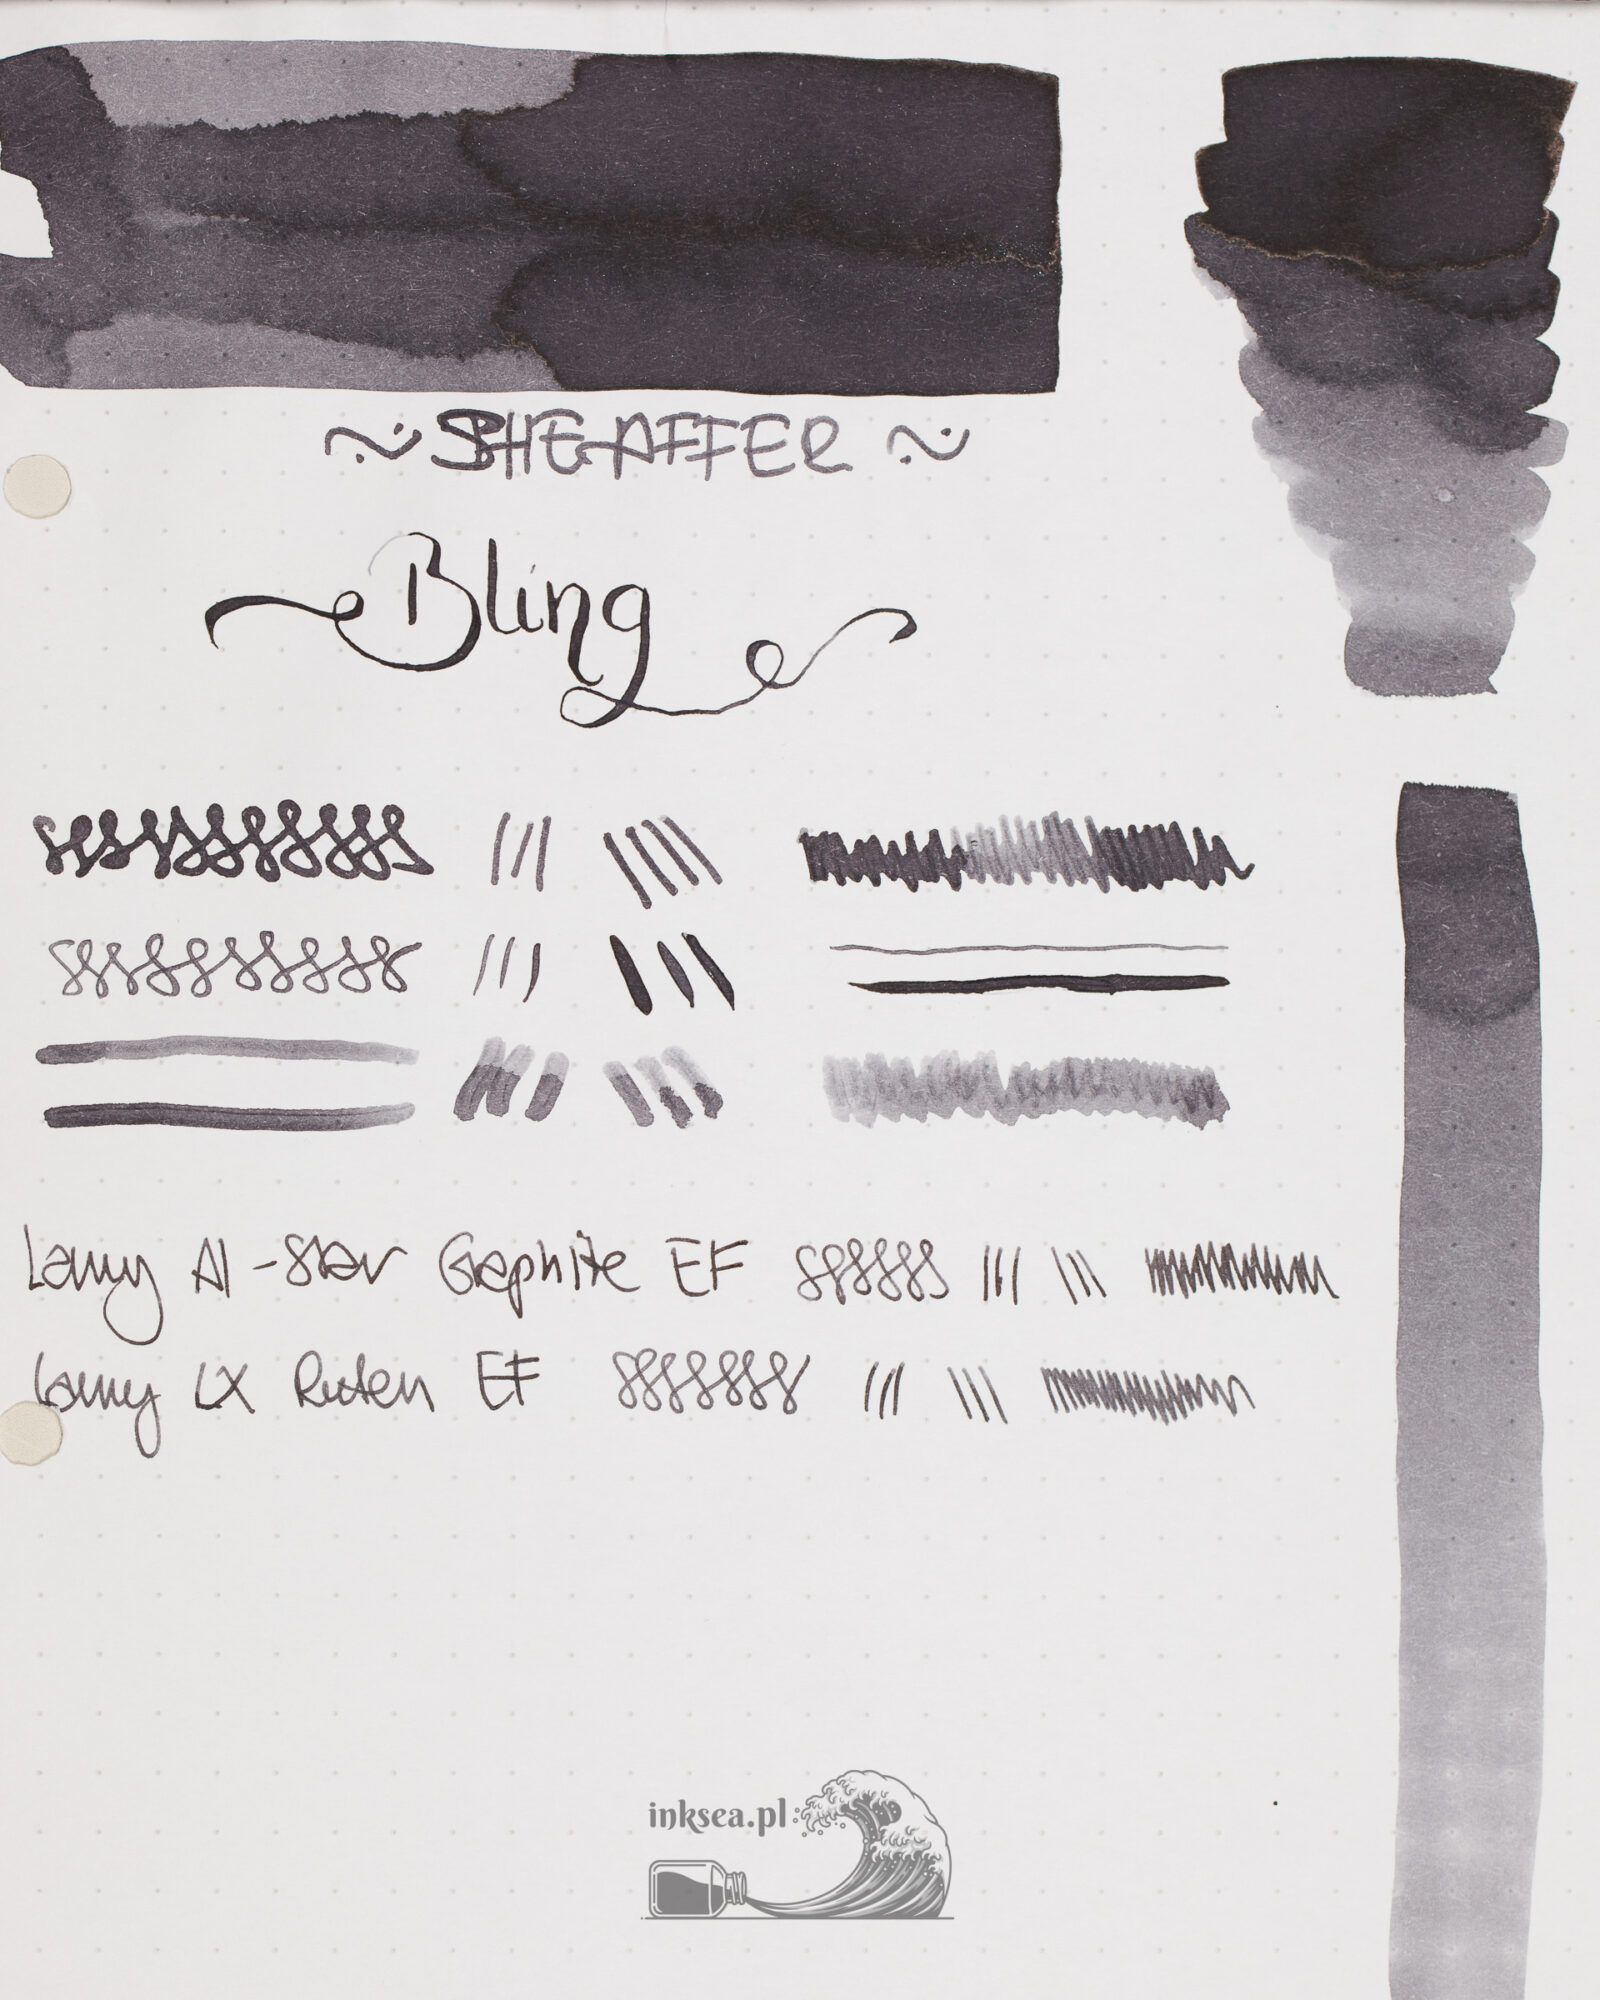 ~ SHEAFFER ~
Bling
Lamy Al-Star Graphite EF
Lamy LX Ruten EF
inksea.pl